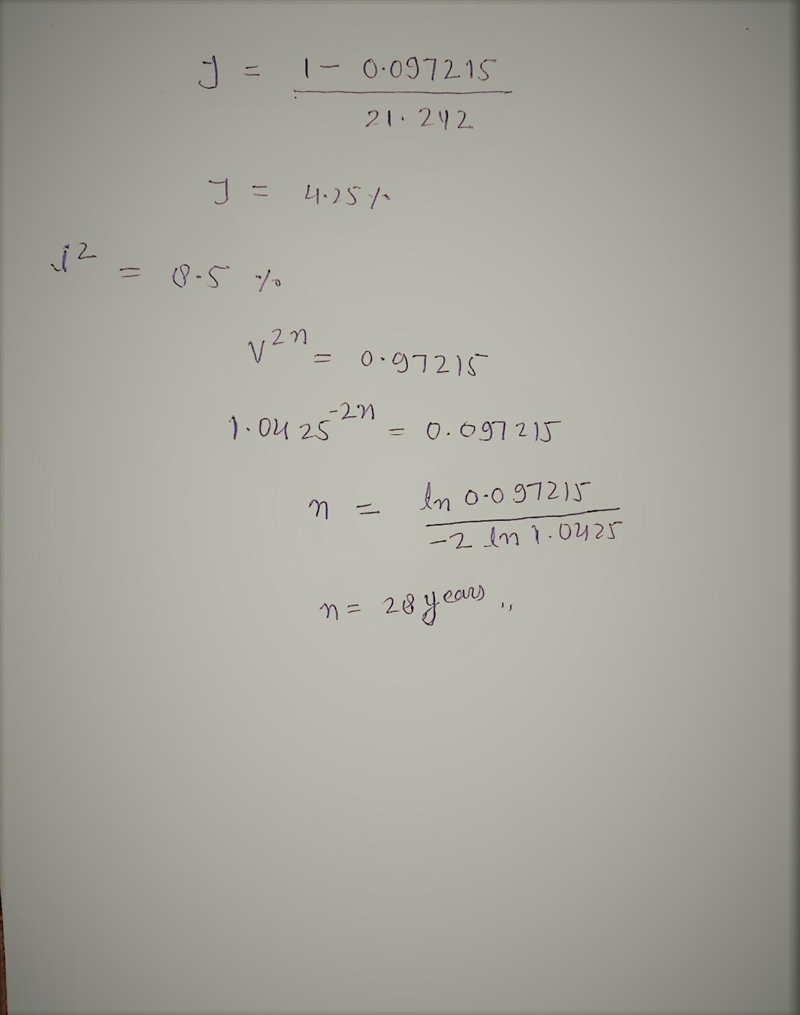 J = 1 - 0.097215 / 21.242
J = 4.25 %
i² = 8.5 %
V²ⁿ = 0.97215
1.0425⁻²ⁿ = 0.097215
n = ln 0.097215 / -2 ln 1.0425
n = 28 years ,,